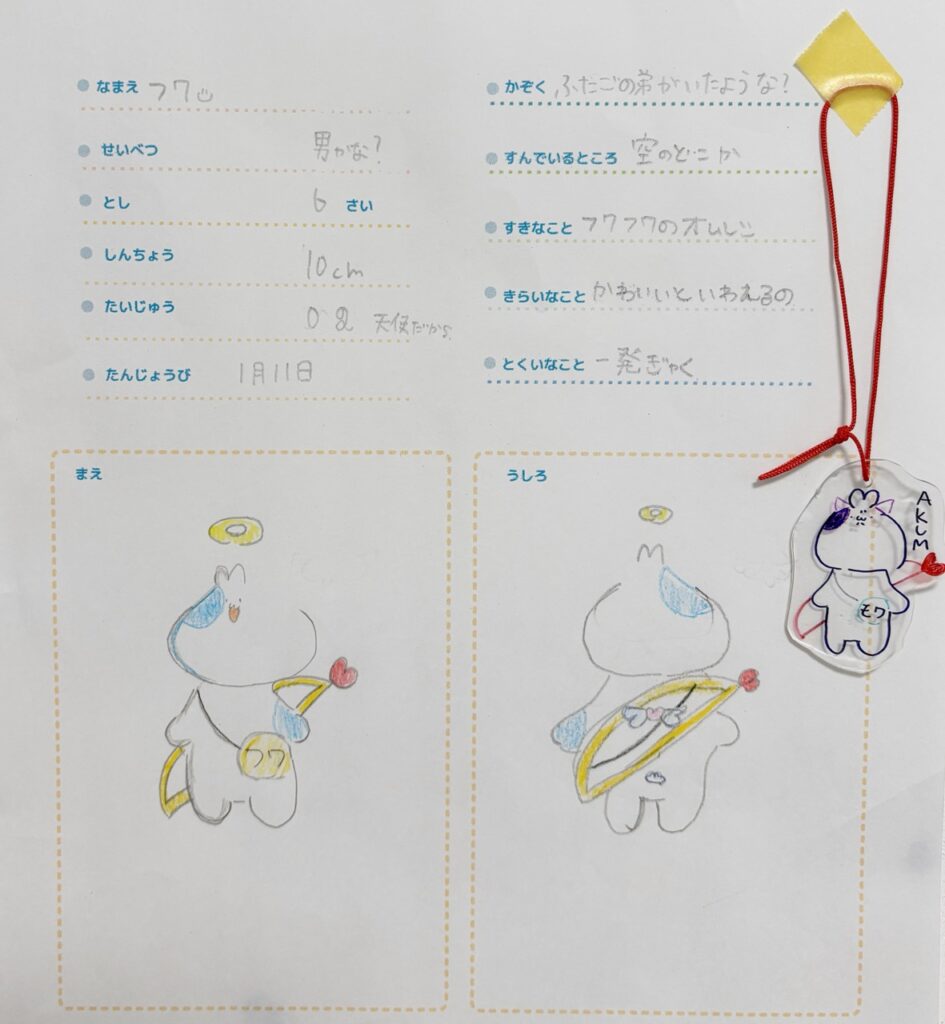 なまえ フワ
せいべつ 男かな?
とし 6 さい
しんちょう 10cm
たいじゅう 0g 天使だから
たんじょうび 1月11日
かぞく ふたごの弟がいたような?
すんでいるところ 空のどこか
すきなこと フワフワのオムレツ
きらいなこと かわいいといわえるの
とくいなこと 一発ぎゃく
まえ
フワ
うしろ
AKUM
モワ